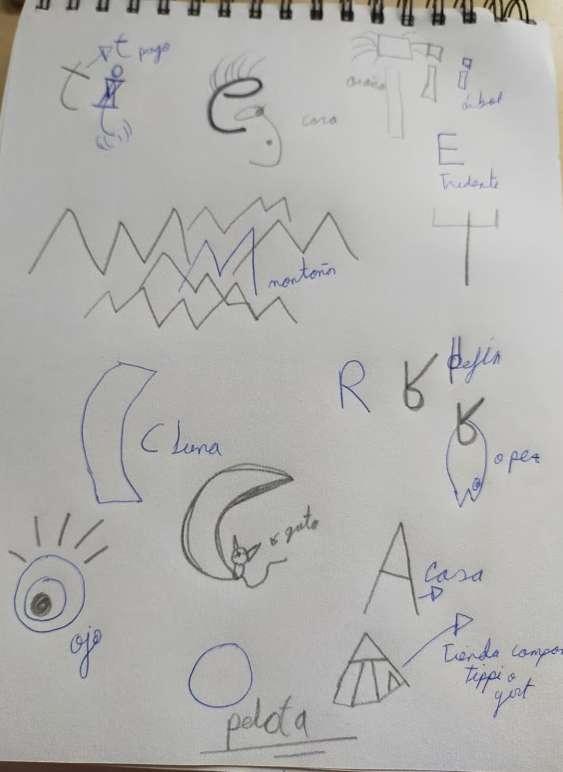 t
t
e
cara
araña
i
árbol
E
Tridente
M
montaña
R
R
C Luna
o pez
o gato
A
Casa
ojo
Tienda campa
tippi o
yurt
pelota